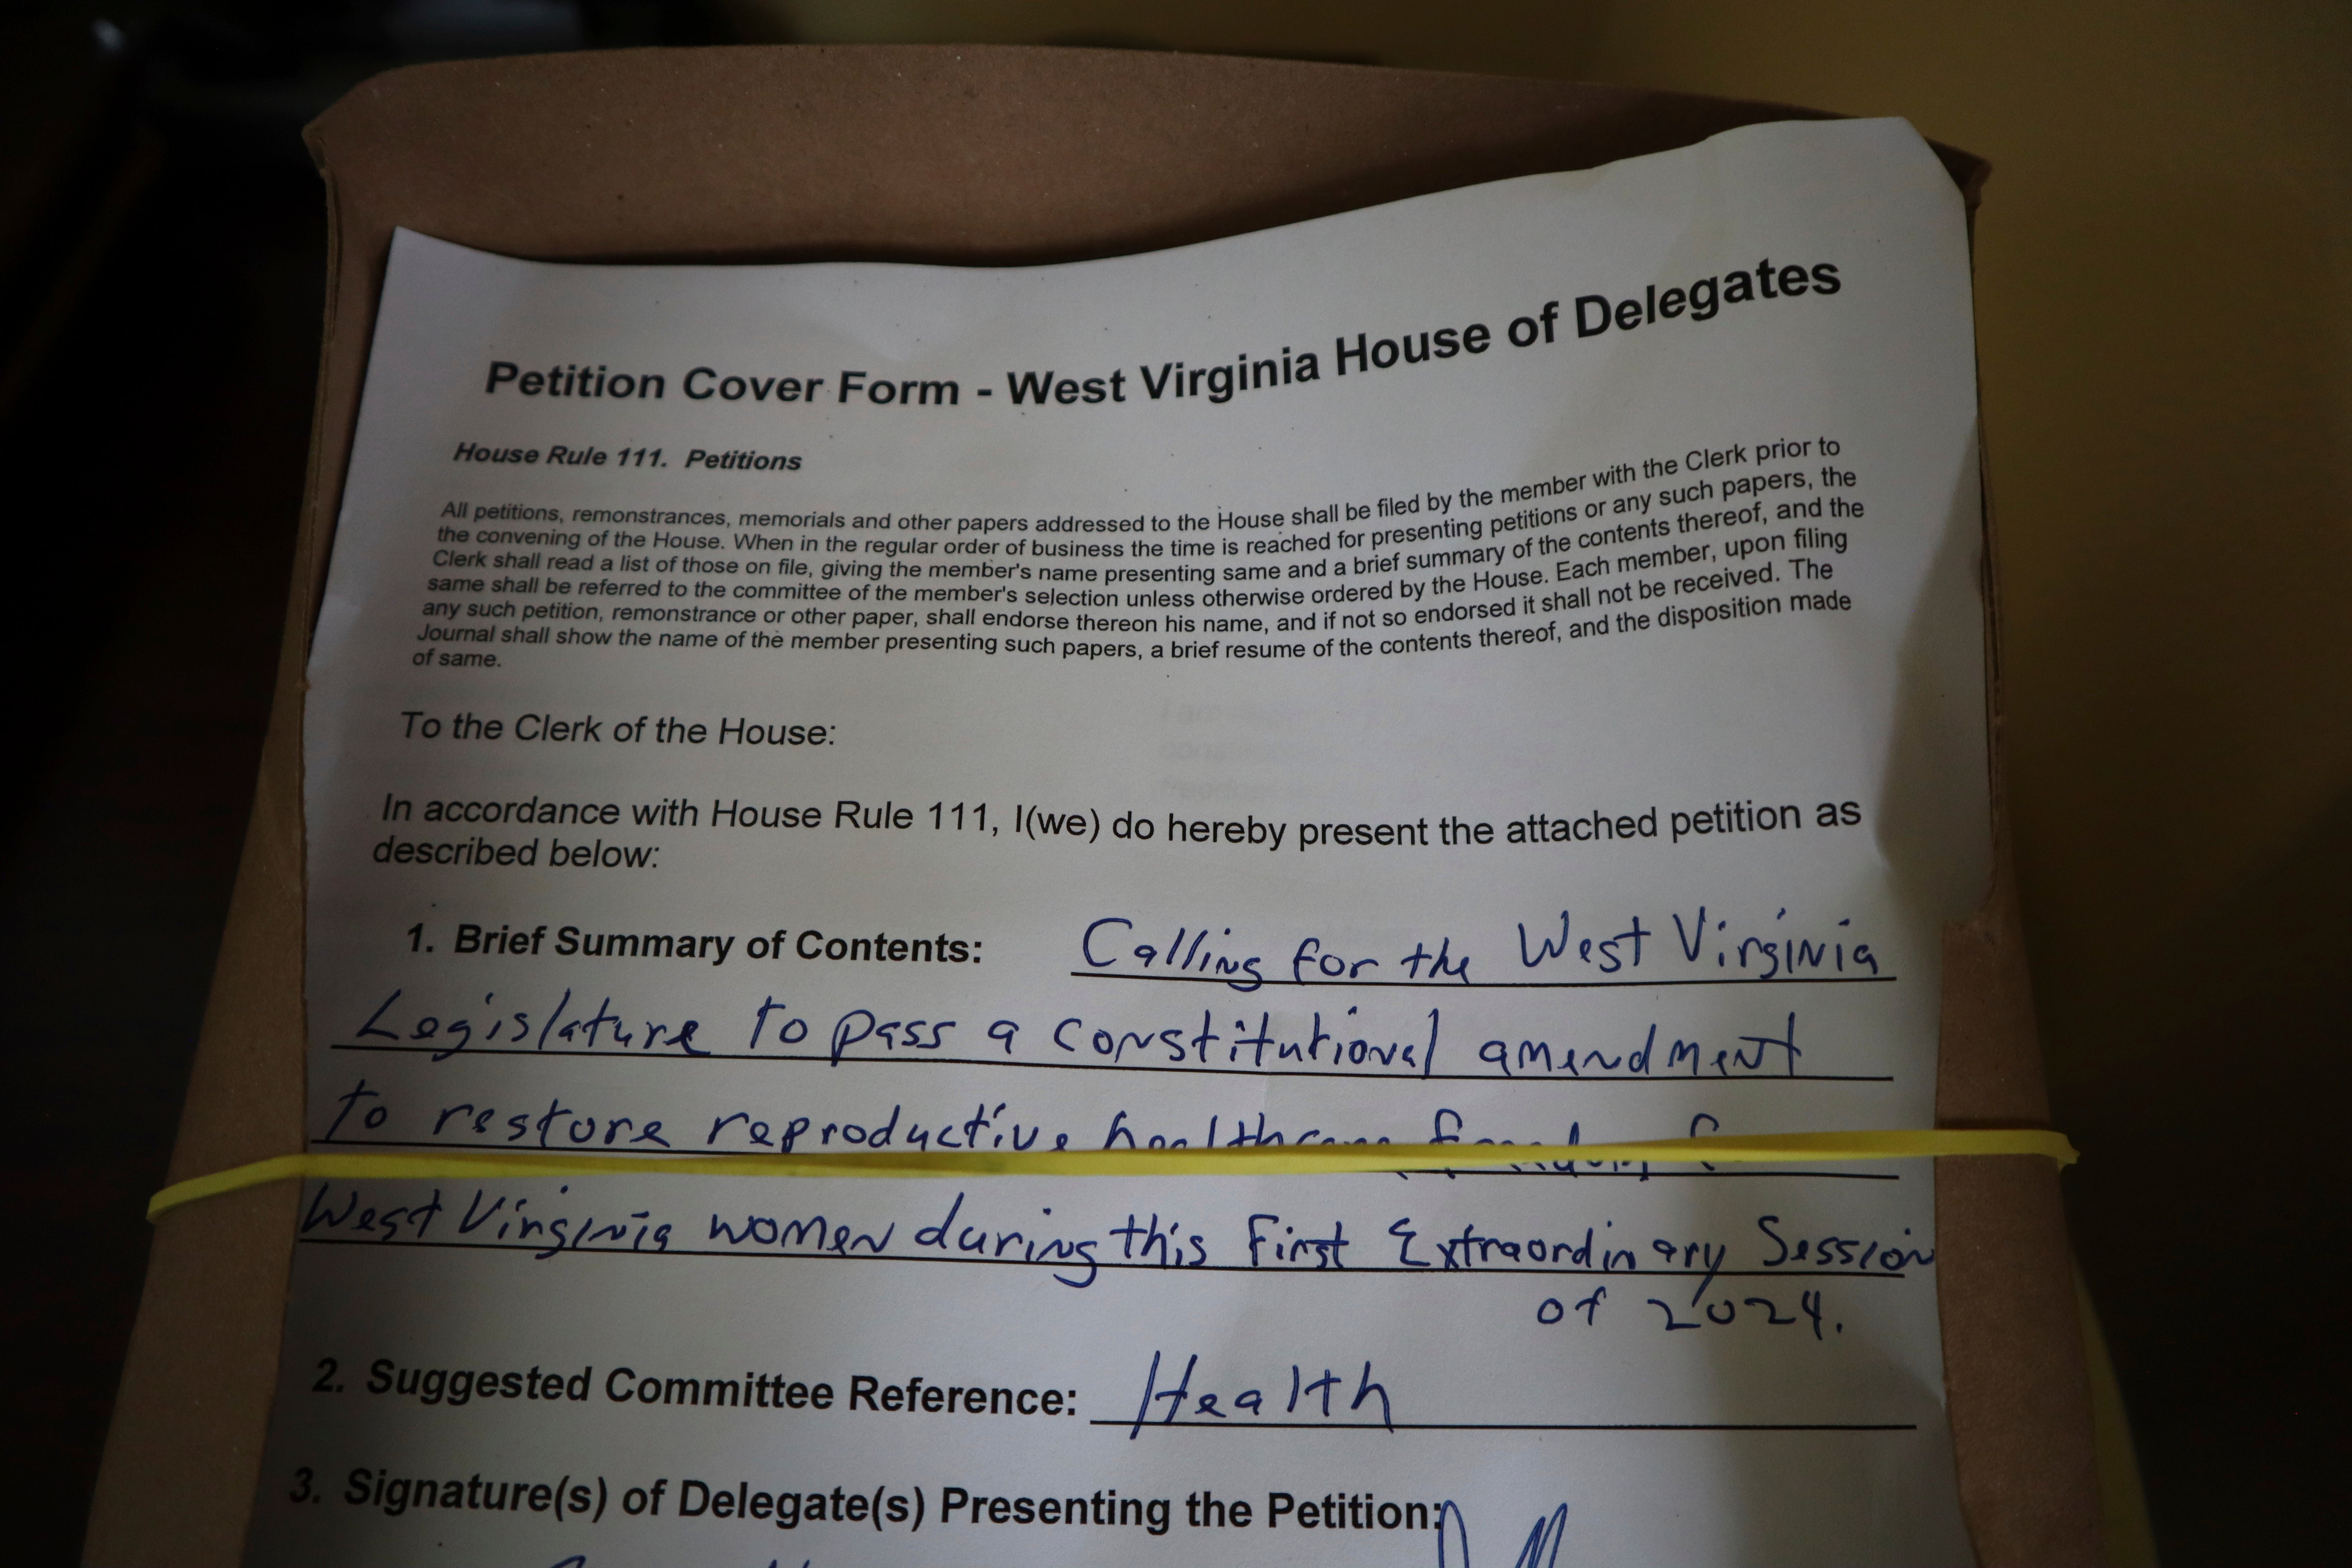 Petition Cover Form - West Virginia House of Delegates
House Rule 111. Petitions
All petitions, remonstrances, memorials and other papers addressed to the House shall be filed by the member with the Clerk prior to
the convening of the House. When in the regular order of business the time is reached for presenting petitions or any such papers, the
Clerk shall read a list of those on file, giving the member's name presenting same and a brief summary of the contents thereof, and the
same shall be referred to the committee of the member's selection unless otherwise ordered by the House. Each member, upon filing
any such petition, remonstrance or other paper, shall endorse thereon his name, and if not so endorsed it shall not be received. The
Journal shall show the name of the member presenting such papers, a brief resume of the contents thereof, and the disposition made
of same.
To the Clerk of the House:
In accordance with House Rule 111, I(we) do hereby present the attached petition as
described below:
1. Brief Summary of Contents: Calling for the West Virginia
Legislature to pass a constitutional amendment
to restore reproductive healthcare freedom
West Virginia women during this First Extraordinary Session
of 2024.
2. Suggested Committee Reference: Health
3. Signature(s) of Delegate(s) Presenting the Petition: